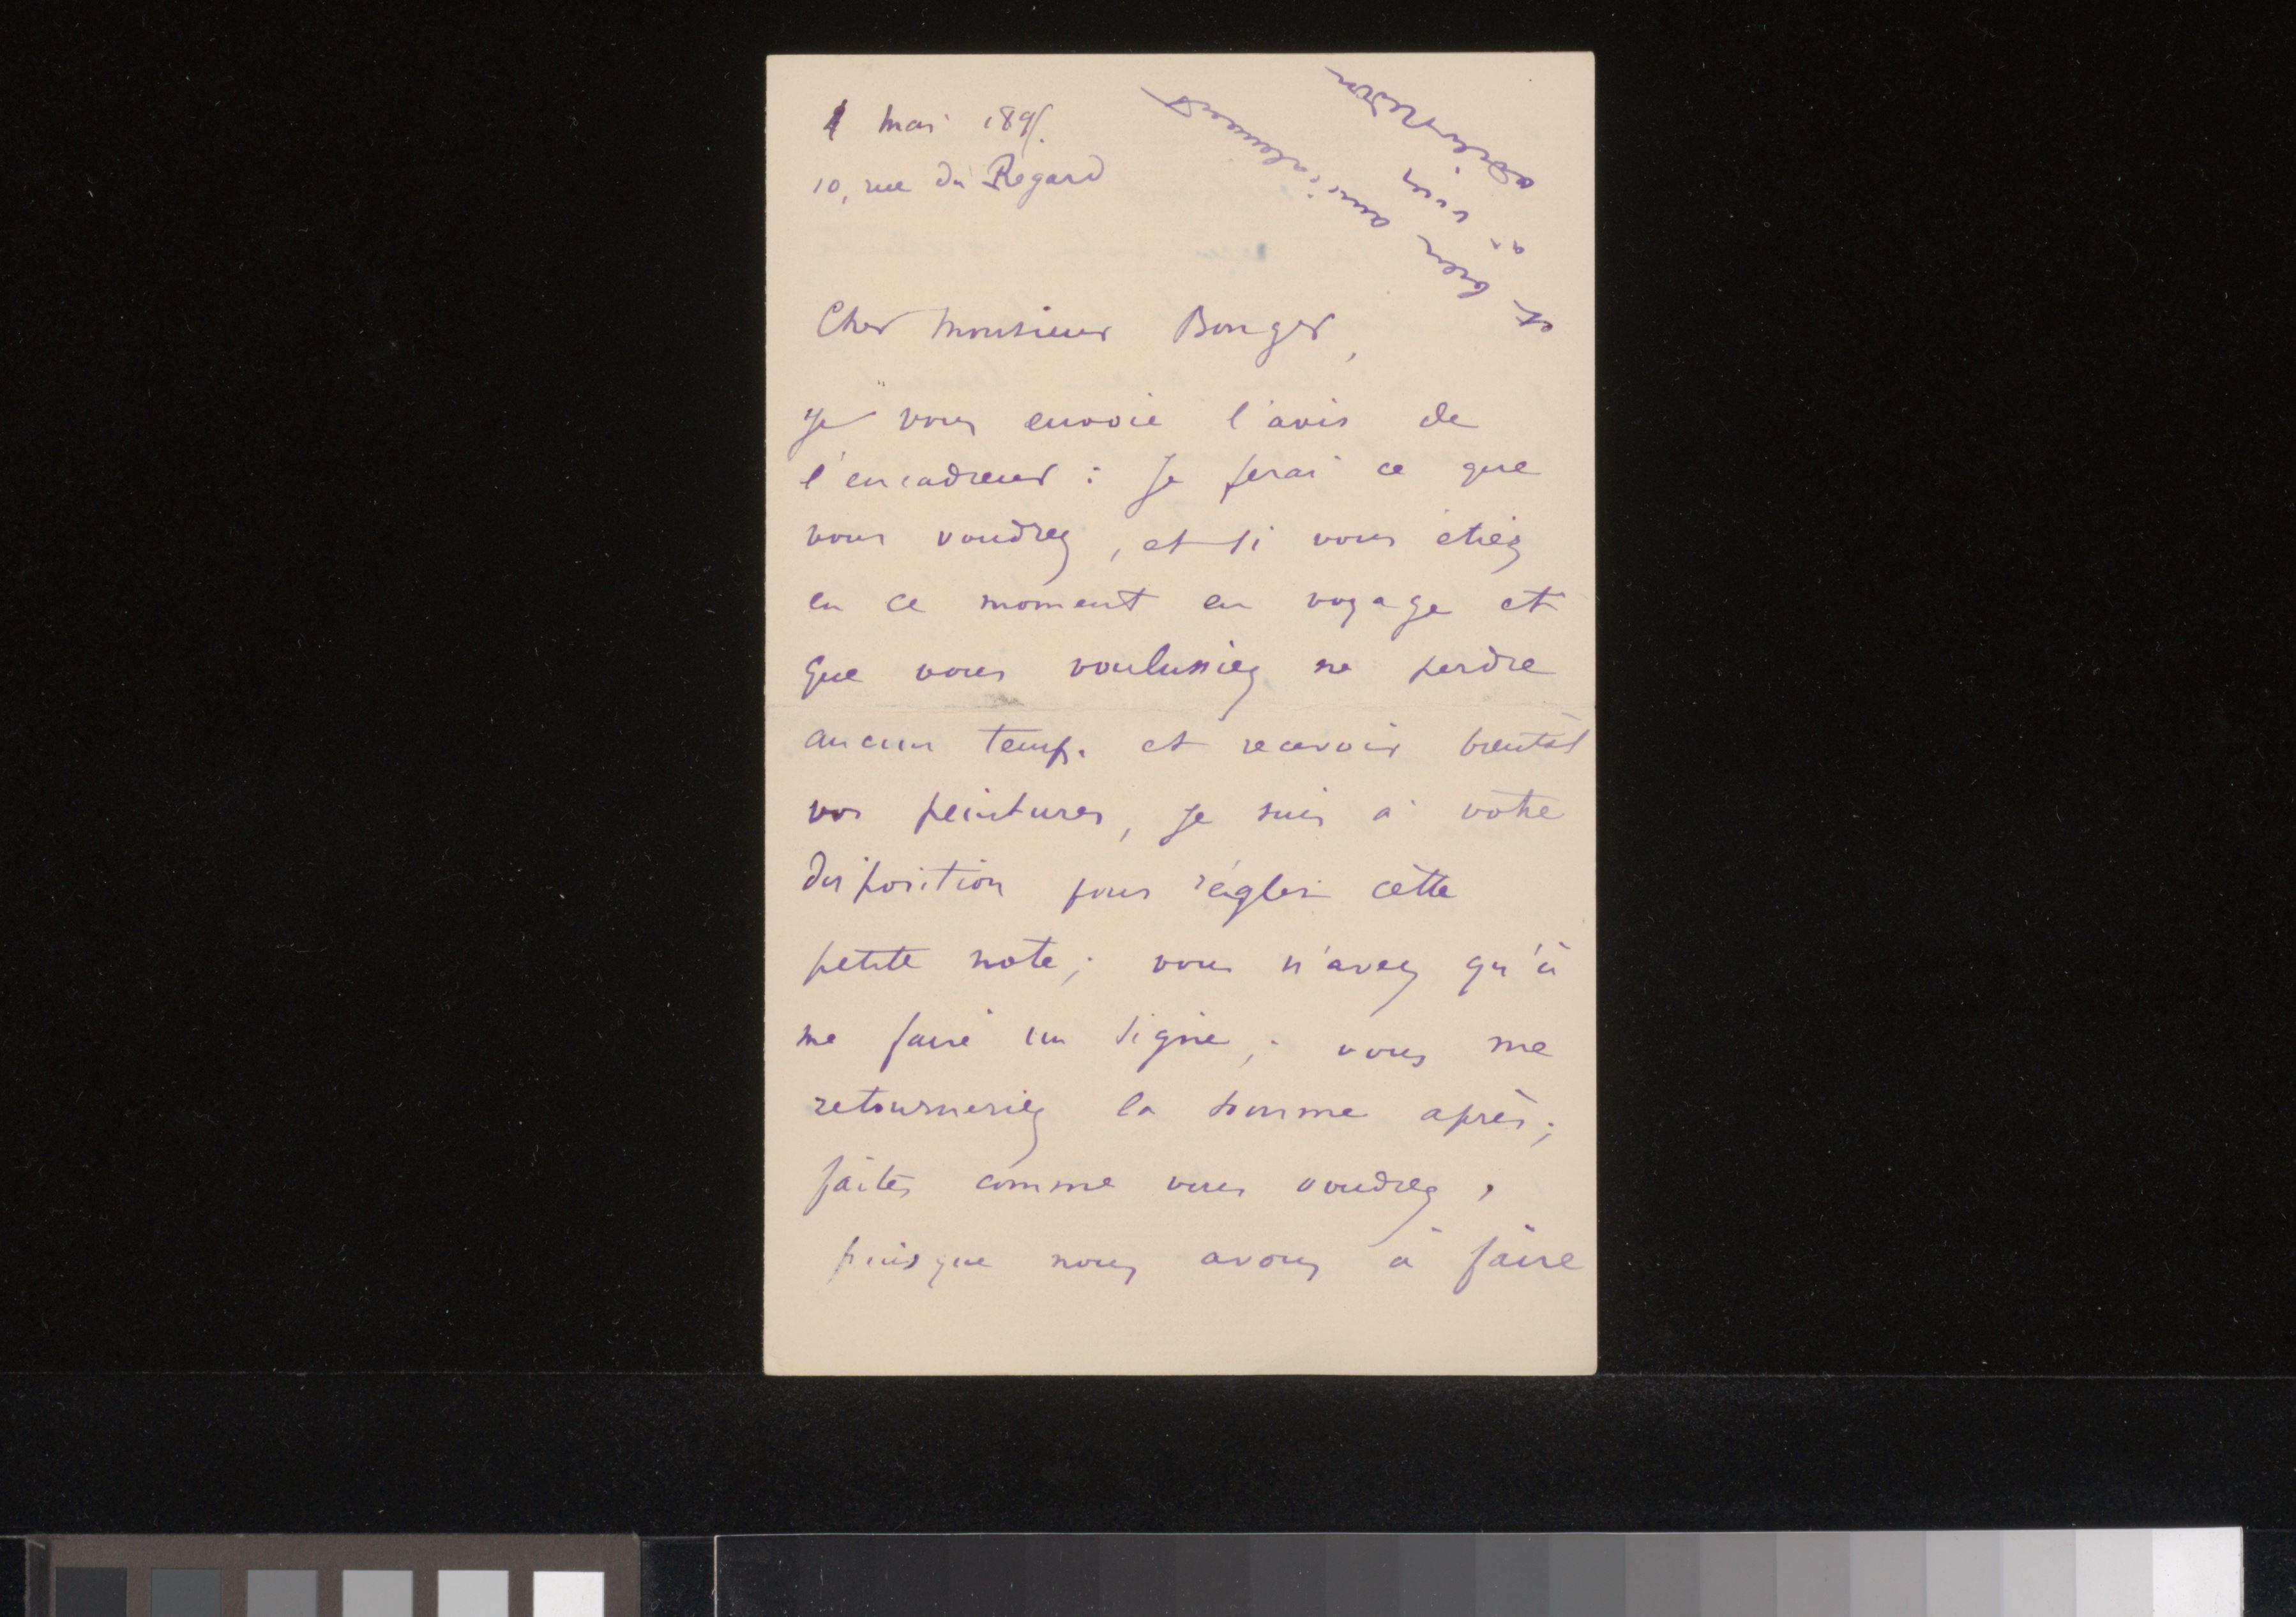 4 mai 1895.
10, rue du Regard
Cher Monsieur Bonger,
Je vous envoie l'avis de
l'encadreur : je ferai ce que
vous voudrez, et si vous étiez
en ce moment en voyage et
que vous voulussiez ne perdre
aucun temps et recevoir bientôt
vos peintures, je suis à votre
disposition pour régler cette
petite note ; vous n'avez qu'à
me faire un signe ; vous me
retourneriez la somme après ;
faites comme vous voudrez,
puisque nous avons à faire
et bien amicalement
à vous
Odilon Redon